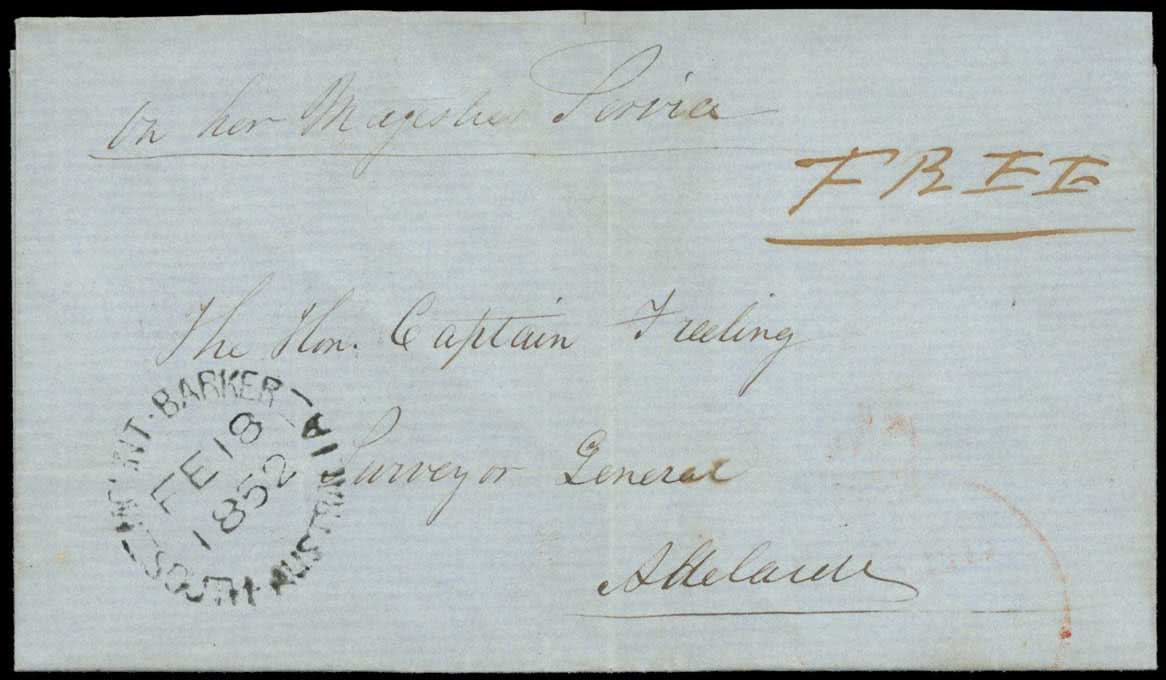 On her Magesties Service
FREE
The Hon. Captain Freeling
Surveyor General
Adelaide
MOUNT·BARKER
FE 18
1852
SOUTH AUSTRALIA